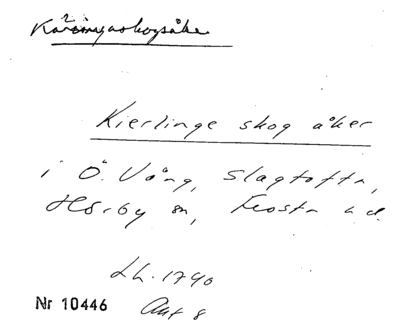 Kierlinge skog åker
i Ö. Vång, Slagtofta,
Hörby sn, Frosta hd.
Lh. 1790
Nr 10446 Akt 8